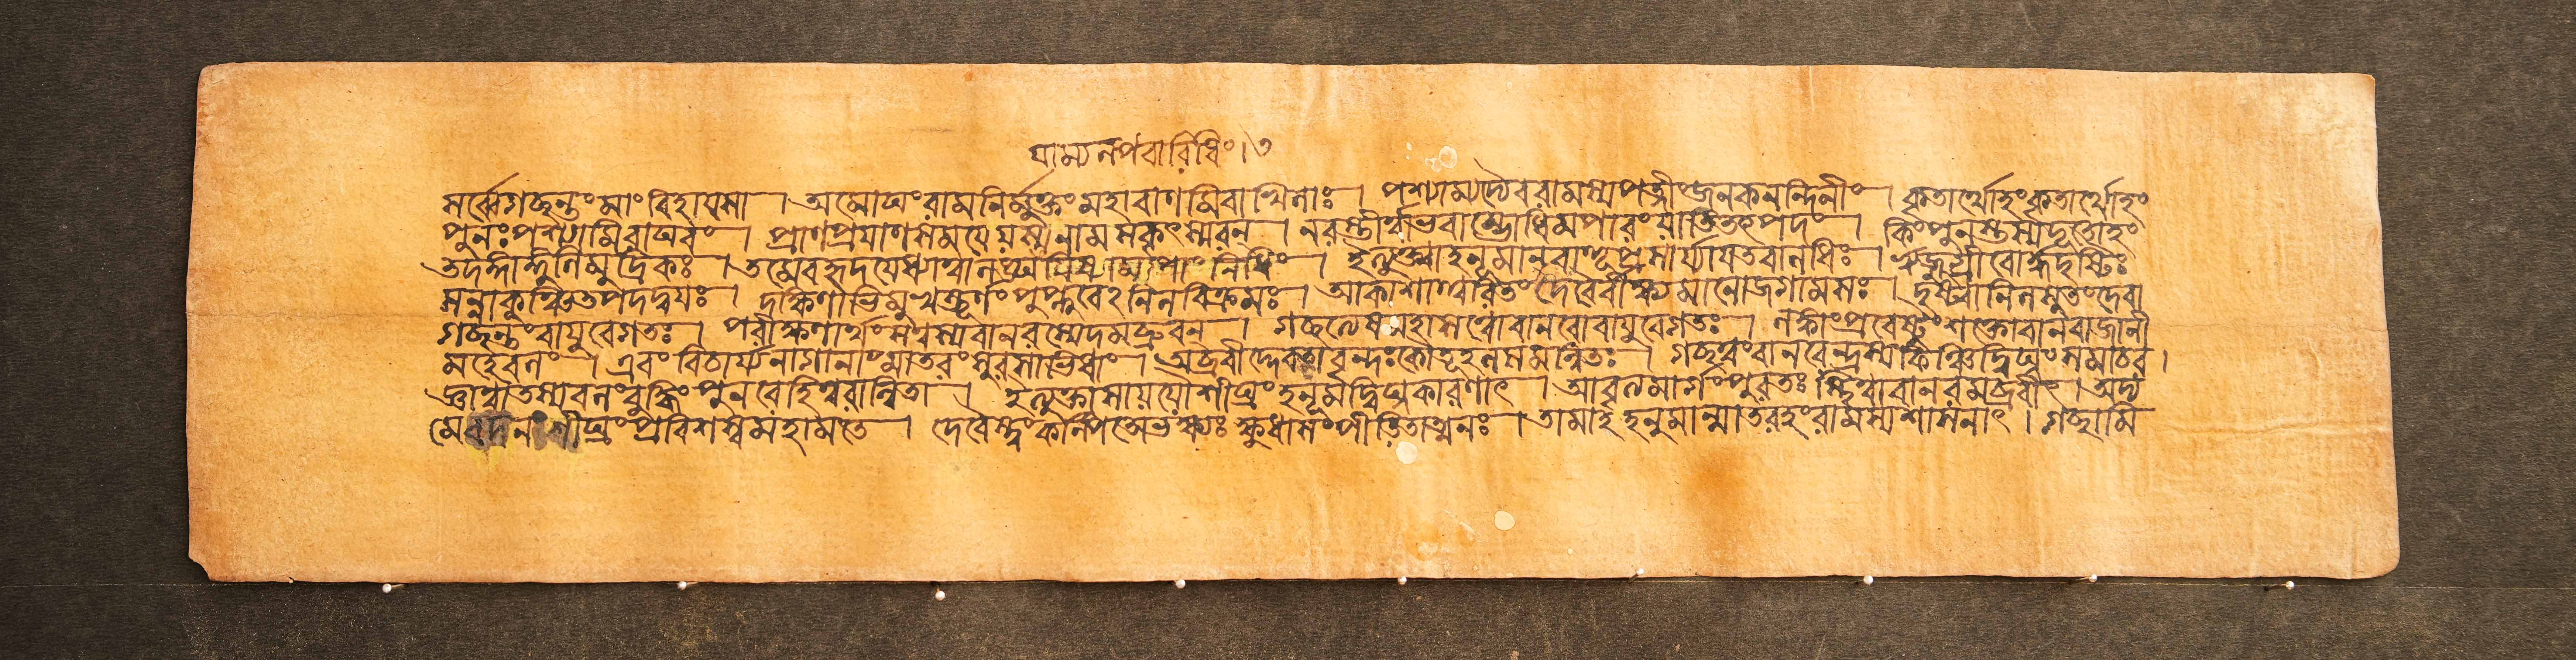 ঘাম্যল্পবারিধিং। ৩
সর্ব্বেগচ্ছন্তংমাংবিহায়সা । অমোঘংরামনির্ম্মুক্তংমহাবাণমিবাখিলাঃ । পশ্যাম্যদ্যৈবরামস্যপত্নীংজনকনন্দিনীং । কৃতার্থোহংকৃতার্থোহং
পুনঃপশ্যামিরাঘবং । প্রাণপ্রয়াণসময়েযস্যনামসকৃৎস্মরন্ । নরস্তীর্ত্বাভবাম্ভোধিমপারংযাতিতৎপদং । কিংপুনস্তস্যদূতোহং
তদঙ্গাঙ্গুলিমুদ্রিকঃ । তমেবহৃদয়েধ্যাত্বালঙ্ঘয়িষ্যাম্যপাংনিধিং । ইত্যুক্ত্বাহনূমান্ বাহূপ্রসার্য্যায়তবালধিঃ । ঋজুগ্রীবোর্দ্ধদৃষ্টিঃ
সন্নাকুঞ্চিতপদদ্বয়ঃ । দক্ষিণাভিমুখস্তূর্ণংপুপ্লুবেঽনিলবিক্রমঃ । আকাশাত্ত্বরিতংদেবৈর্বীক্ষ্যমানোজগামসঃ । দৃষ্ট্বানিলসুতংদেবা
গচ্ছন্তংবায়ুবেগতঃ । পরীক্ষণার্থংসত্ত্বস্যবানরস্যেদমব্রুবন্ । গচ্ছত্যেষমহাসত্ত্বোবানরোবায়ুবেগতঃ । লঙ্কাংপ্রবেষ্টুংশক্তোবানবাজানী
মহেবলং । এবংবিচার্য্যনাগানাংমাতরংসুরসাভিধাং । অব্রবীদ্দেবতাবৃন্দঃকৌতূহলসমন্বিতঃ । গচ্ছত্বংবানরেন্দ্রস্যকিঞ্চিদ্বিঘ্নংসমাচর ।
জ্ঞাত্বাতস্যবলংবুদ্ধিংপুনরেহিত্বরান্বিতা । ইত্যুক্তাসাযযৌশীঘ্রংহনূমদ্বিঘ্নকারণাৎ । আবৃত্যমার্গংপুরতঃস্থিত্বাবানরমব্রবীৎ । অদ্য
মেবদনংশীঘ্রংপ্রবিশস্বমহামতে । দেবৈস্ত্বংকল্পিতোভক্ষ্যঃক্ষুধাসংপীড়িতাত্মনঃ । তামাহহনুমান্মাতরহংরামস্যশাসনাৎ । গচ্ছামি